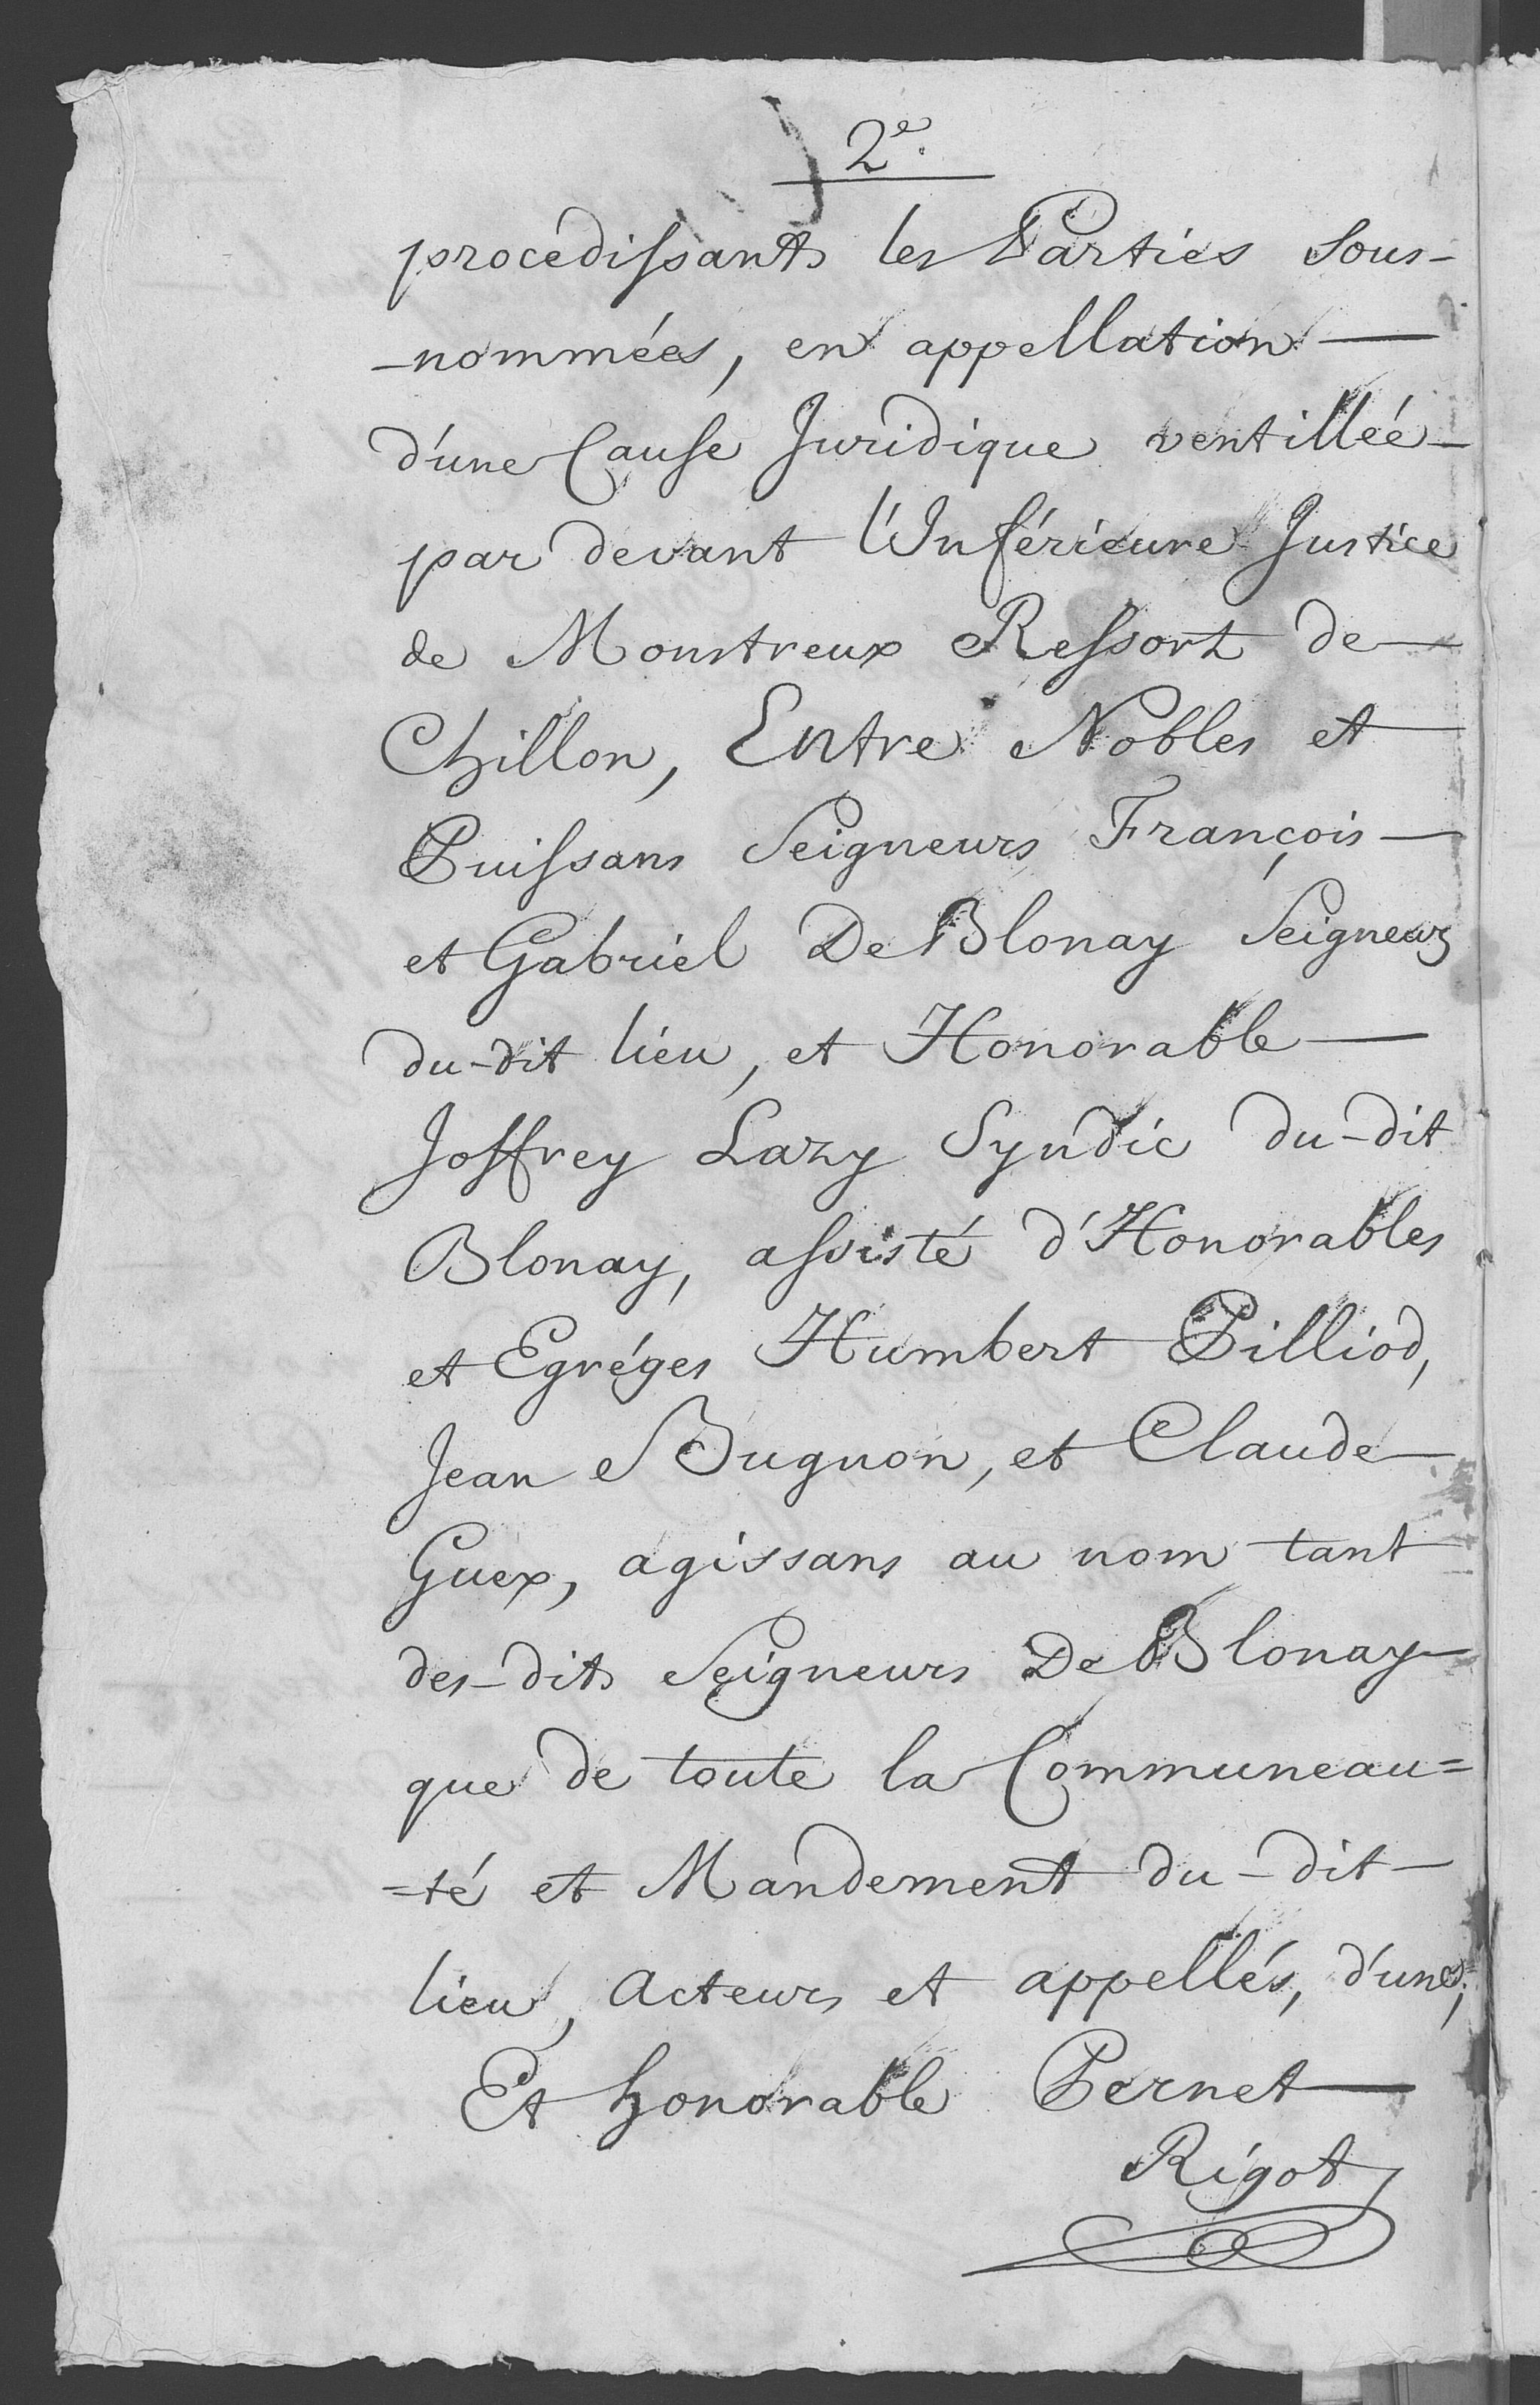 2e.
procédissants les Parties sous-
-nommées, en appellation —
d'une Cause Juridique ventillée -
par devant l'Inférieure Justice
de Monstreux Ressort de —
Chillon, Entre Nobles et
Puissans Seigneurs François —
et Gabriel De Blonay Seigneurs
du-dit lieu, et Honorable —
Joffrey Lazy Syndic du-dit
Blonay, assisté d'Honorables
et Egréges Humbert Pilliod,
Jean Bugnon, et Claude
Guex, agissans au nom tant
des-dits Seigneurs De Blonay
que de toute la Communeau=
=té et Mandement du-dit-
lieu, Acteurs et appellés, d'une;
Et honorable Pernet —
Rigot